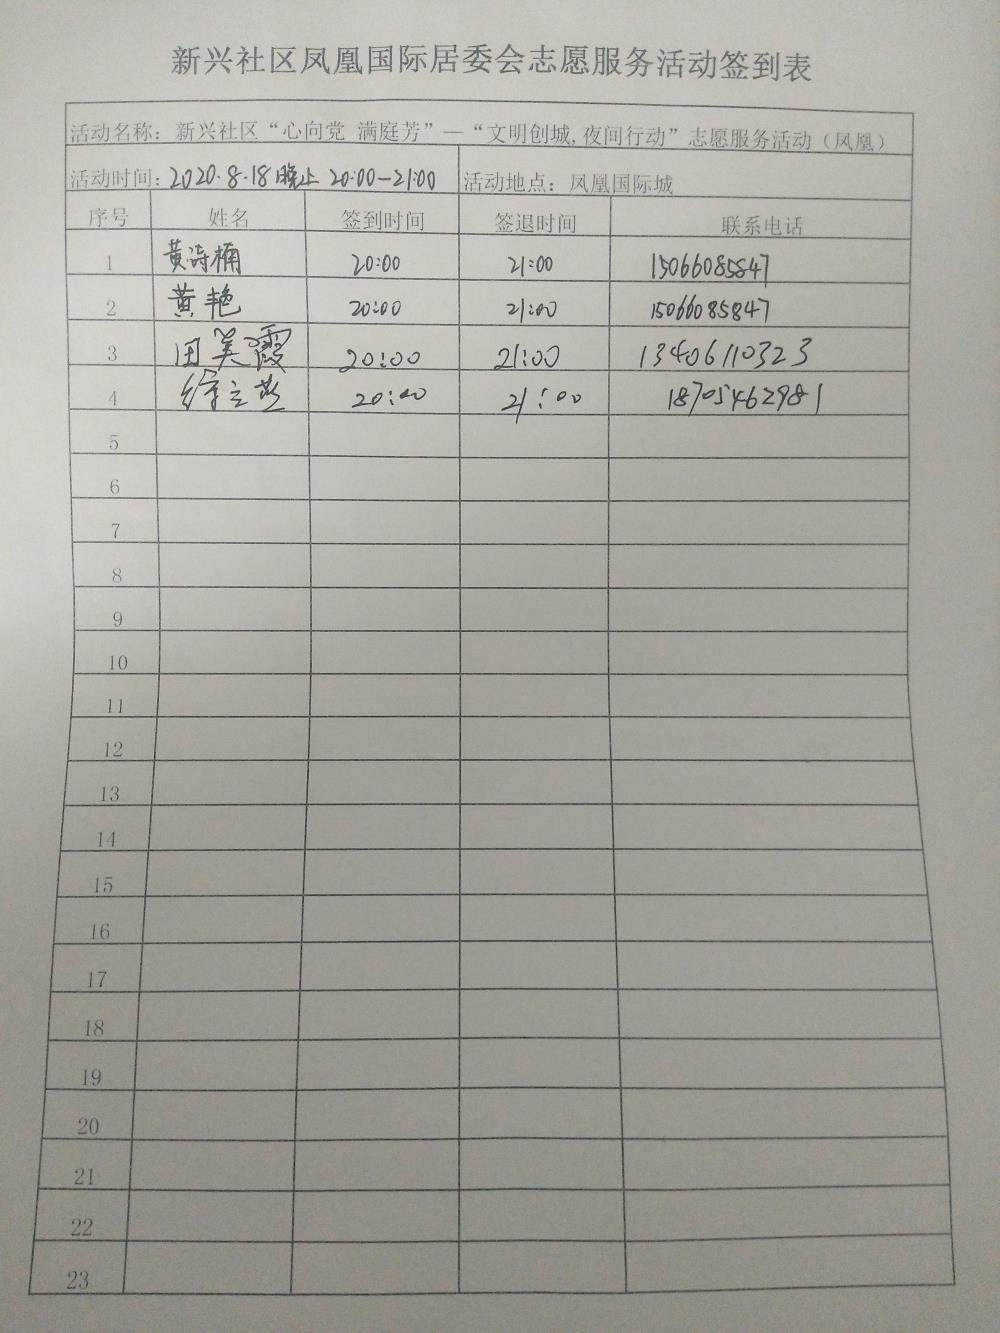 新兴社区凤凰国际居委会志愿服务活动签到表
活动名称：新兴社区“心向党 满庭芳”—“文明创城,夜间行动”志愿服务活动（凤凰）
活动时间：2020.8.18晚上 20:00—21:00 活动地点：凤凰国际城
序号 姓名 签到时间 签退时间 联系电话
1 黄诗楠 20:00 21:00 15066085847
2 黄艳 20:00 21:00 15066085847
3 田美霞 20:00 21:00 13406110323
4 徐立燕 20:00 21:00 18705462981
5
6
7
8
9
10
11
12
13
14
15
16
17
18
19
20
21
22
23